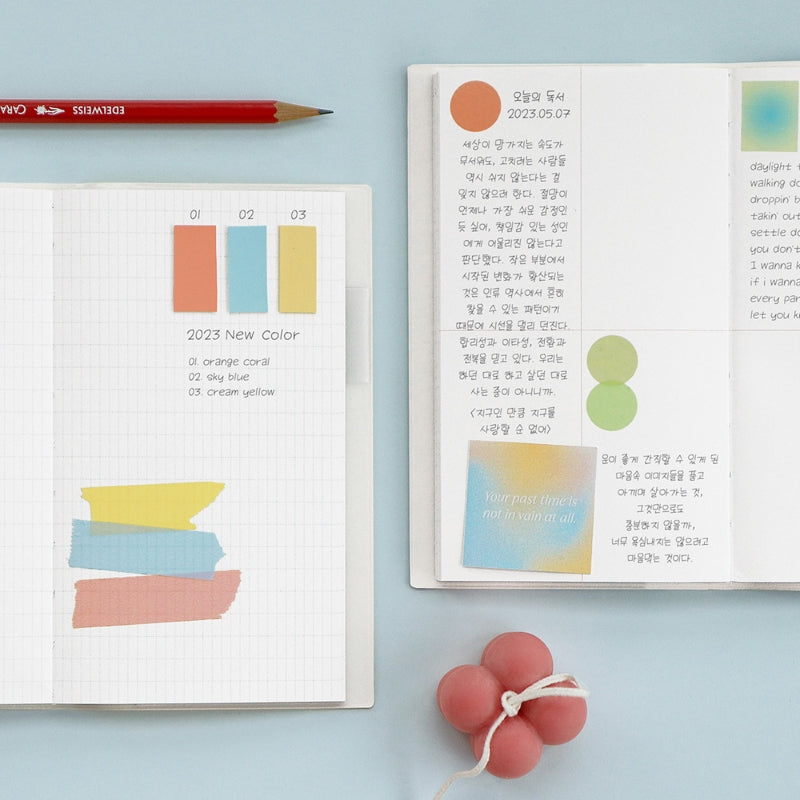 EDELWEISS
CARA
01 02 03
2023 New Color
01. orange coral
02. sky blue
03. cream yellow
오늘의 독서
2023.05.07
세상이 망가지는 속도가
무서워도, 고치려는 사람들
역시 쉬지 않는다는 걸
잊지 않으려 한다. 절망이
언제나 가장 쉬운 감정인
듯 싶어, 책임감 있는 성인
에게 어울리진 않는다고
판단했다. 작은 부분에서
시작된 변화가 확산되는
것은 인류 역사에서 흔히
찾을 수 있는 패턴이기
때문에 시선을 멀리 던진다.
합리성과 이타성, 전환과
전복을 믿고 있다. 우리는
하던 대로 하고 살던 대로
사는 종이 아니니까.
<지구인 만큼 지구를
사랑할 순 없어>
Your past time is
not in vain at all.
운이 좋게 간직할 수 있게 된
마음속 이미지들을 품고
아끼며 살아가는 것,
그것만으로도
충분하지 않을까,
너무 욕심내지는 않으려고
마음먹는 것이다.
daylight
walking do
droppin' b
takin' out
settle do
you don't
I wanna k
if i wanna
every par
let you k